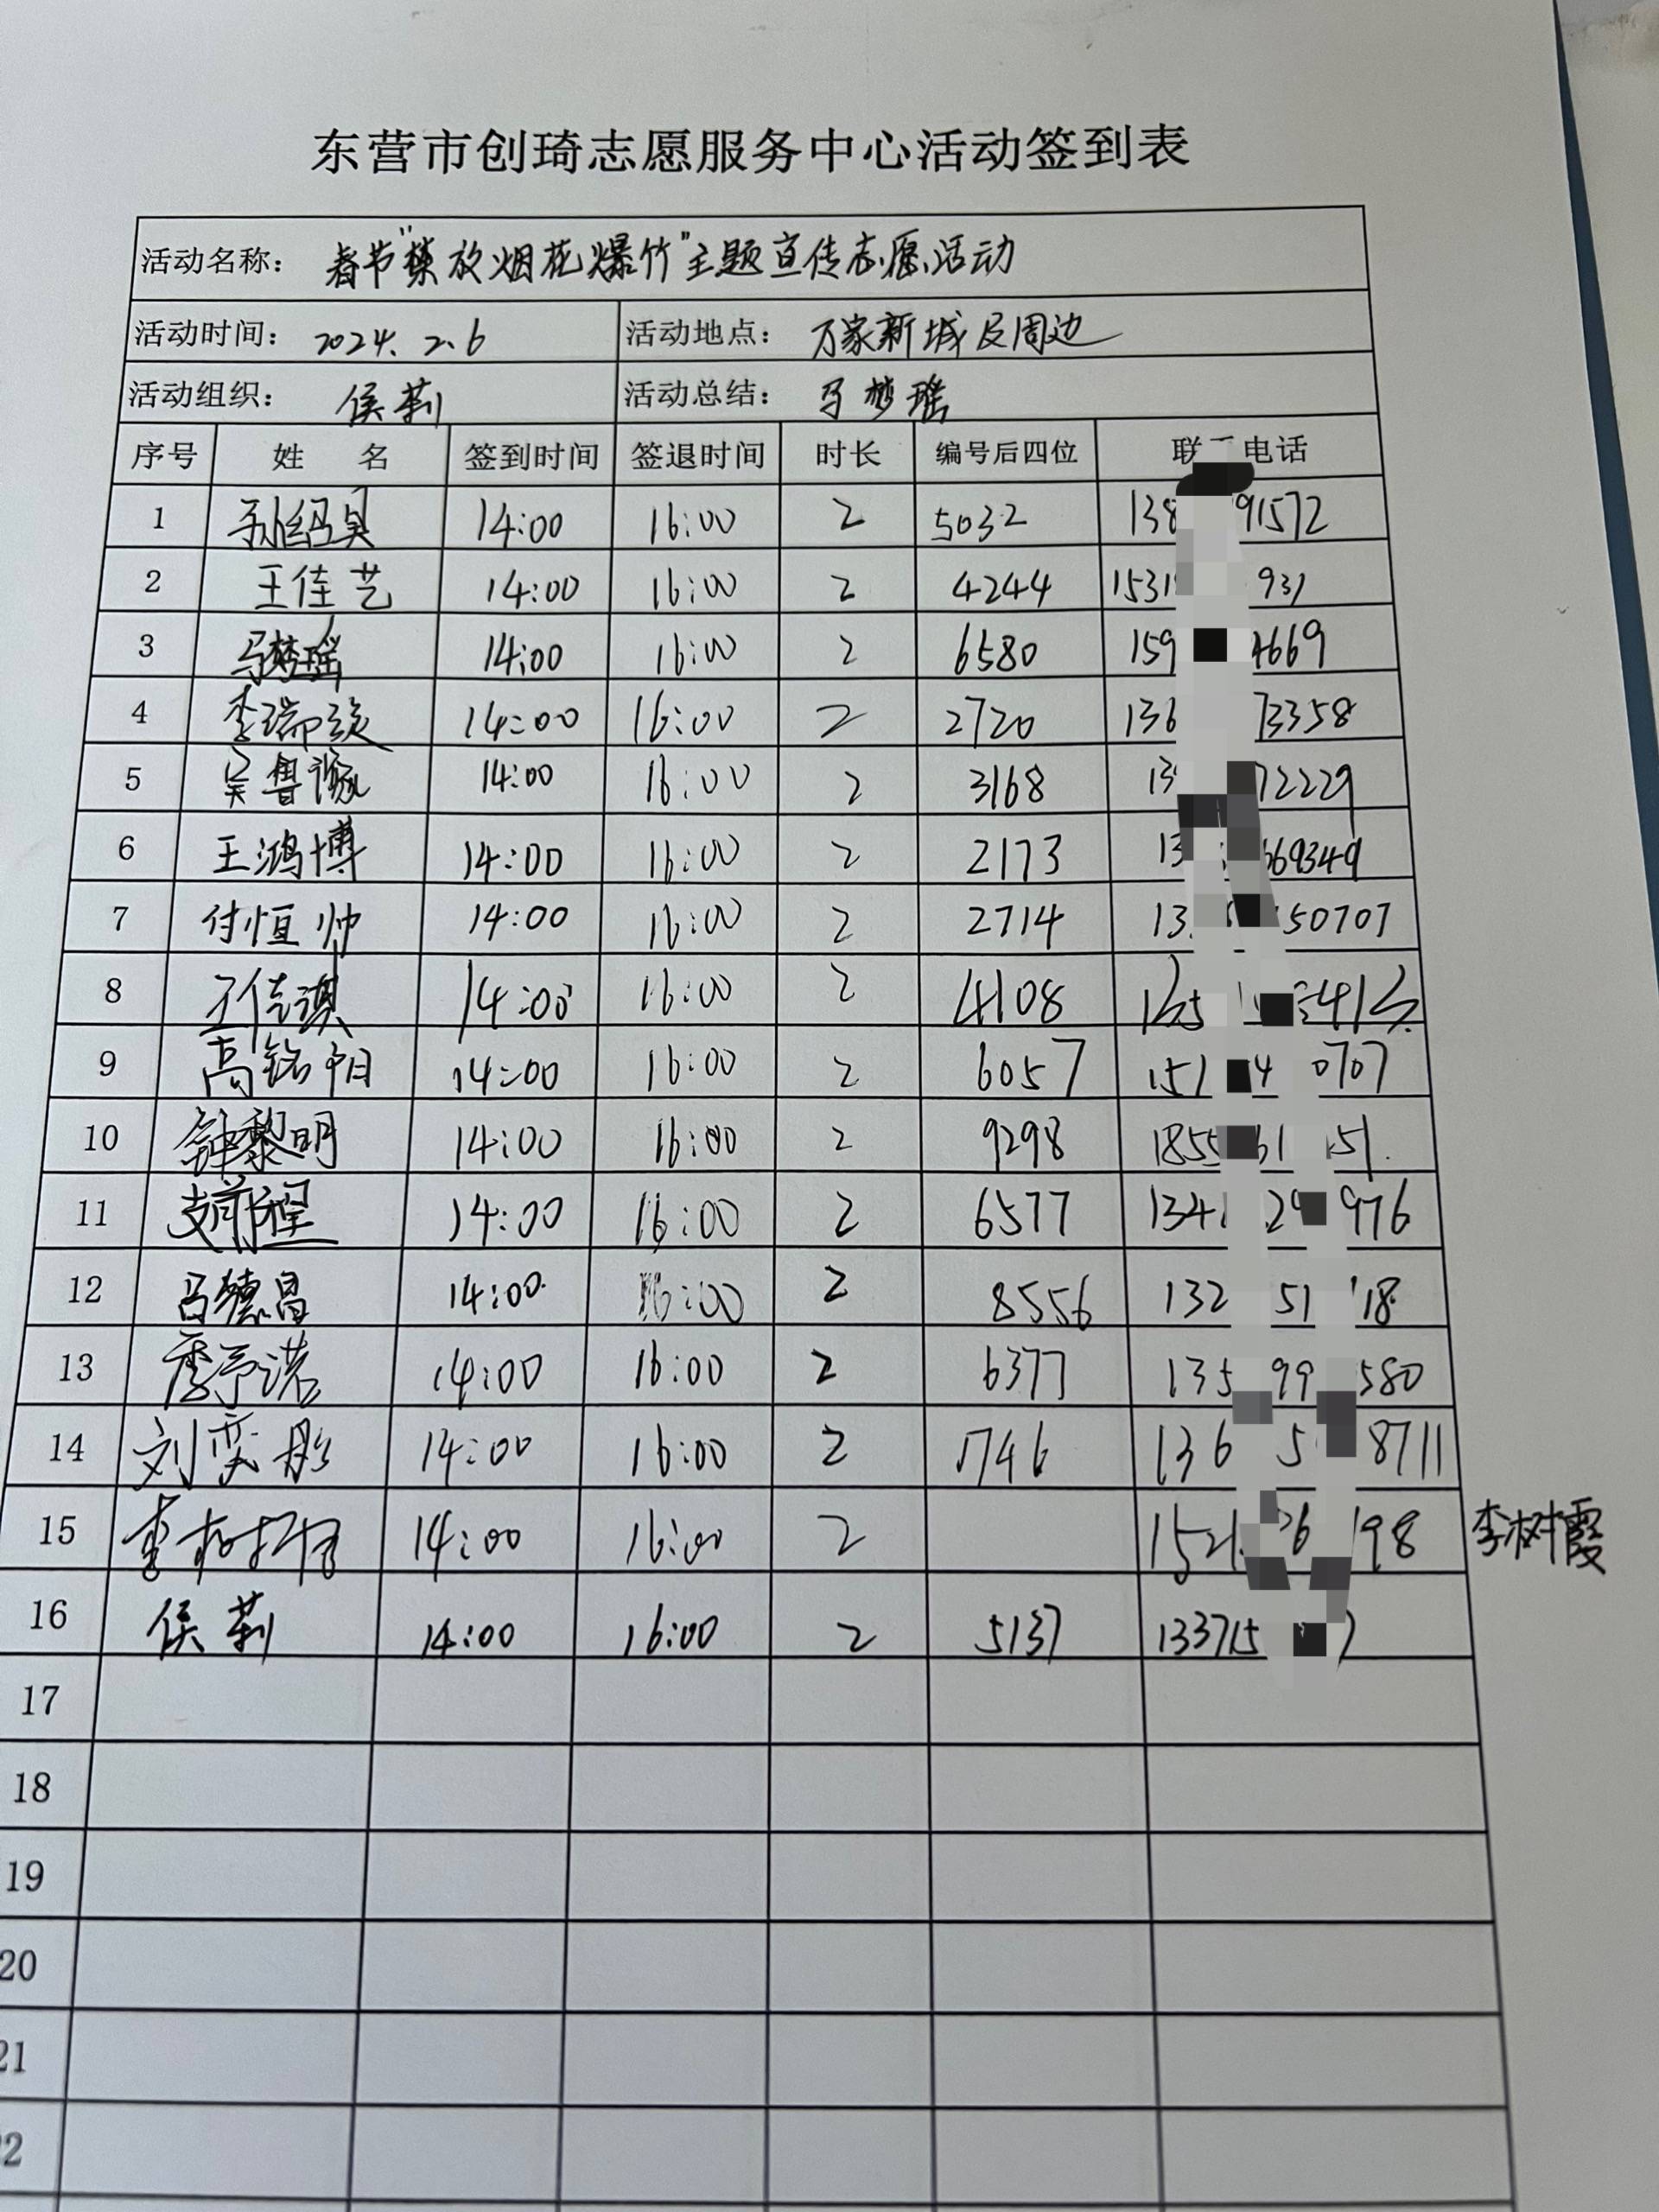 东营市创琦志愿服务中心活动签到表
活动名称： 春节"禁放烟花爆竹"主题宣传志愿活动
活动时间： 2024.2.6 活动地点： 万家新城及周边
活动组织： 侯莉 活动总结： 马梦瑶
序号 姓 名 签到时间 签退时间 时长 编号后四位 联 电话
1 孙绍昊 14:00 16:00 2 5032 138 91572
2 王佳艺 14:00 16:00 2 4244 1531 931
3 马梦瑶 14:00 16:00 2 6580 159 4669
4 李瑞 14:00 16:00 2 2720 136 73358
5 吴鲁 14:00 16:00 2 3168 13 72229
6 王鸿博 14:00 16:00 2 2173 13 669349
7 付恒帅 14:00 16:00 2 2714 13 50707
8 王佳淇 14:00 16:00 2 4108
9 高铭阳 14:00 16:00 2 6057 151 4 0707
10 钟黎明 14:00 16:00 2 9298 1855 61 51.
11 14:00 16:00 2 6577 134 29 976
12 马德昌 14:00 16:00 2 8556 132 51 18
13 季予諾 14:00 16:00 2 6377 135 99 580
14 刘奕彤 14:00 16:00 2 1746 136 5 8711
15 李树霞 14:00 16:00 2 152 26 198 李树霞
16 侯莉 14:00 16:00 2 5137 133715 7
17
18
19
20
21